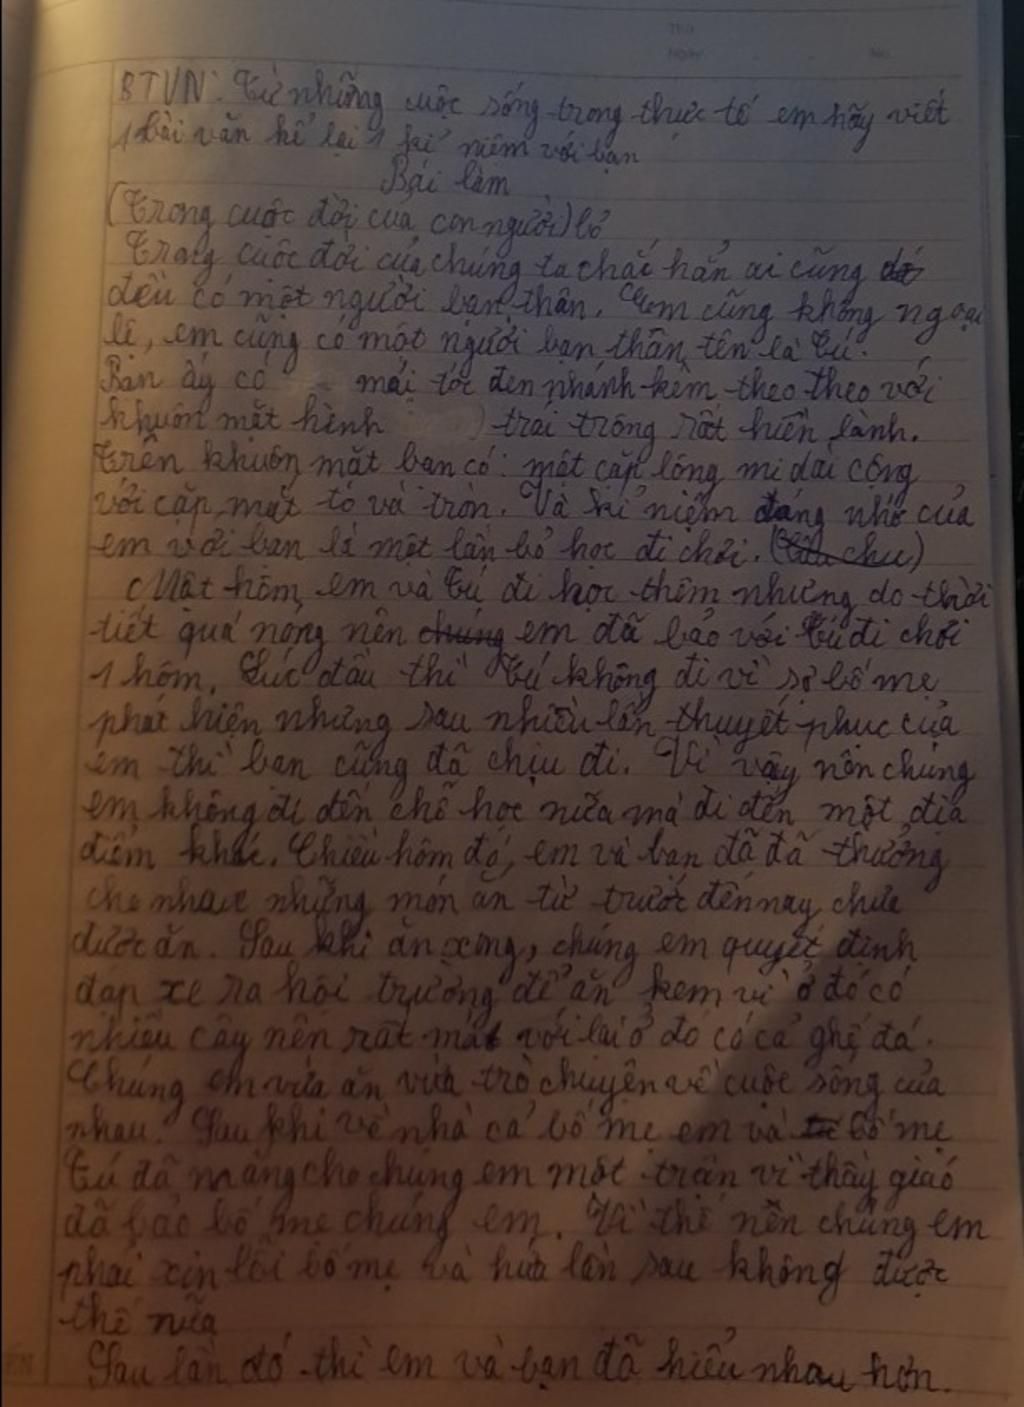 Thứ
Ngày No.
BTVN: Từ những cuộc sống trong thực tế em hãy viết
1 bài văn kể lại 1 kỉ niệm với bạn
Bài làm
(Trong cuộc đời của con người) bỏ
Trong cuộc đời của chúng ta chắc hẳn ai cũng
đều có một người bạn thân. Em cũng không ngoại
lệ, em cũng có một người bạn thân tên là Tú.
Bạn ấy có mái tóc đen nhánh kèm theo theo với
khuôn mặt hình ) trái trông rất hiền lành.
Trên khuôn mặt bạn có: một cặp lông mi dài cộng
với cặp mắt to và tròn. Và kỉ niệm đáng nhớ của
em với bạn là một lần bỏ học đi chơi.
Một hôm, em và Tú đi học thêm nhưng do thời
tiết quá nóng nên chúng em đã bảo với Tú đi chơi
1 hôm. Lúc đầu thì Tú không đi vì sợ bố mẹ
phát hiện nhưng sau nhiều lần thuyết phục của
em thì bạn cũng đã chịu đi. Vì vậy nên chúng
em không đi đến chỗ học nữa mà đi đến một địa
điểm khác. Chiều hôm đó, em và bạn đã đã thưởng
cho nhau những món ăn từ trước đến nay chưa
được ăn. Sau khi ăn xong, chúng em quyết định
đạp xe ra hội trường để ăn kem vì ở đó có
nhiều cây nên rất mát với lại ở đó có cả ghế đá.
Chúng em vừa ăn vừa trò chuyện về cuộc sống của
nhau. Sau khi về nhà cả bố mẹ em và bố mẹ
Tú đã mắng cho chúng em một trận vì thầy giáo
đã báo bố mẹ chúng em. Vì thế nên chúng em
phải xin lỗi bố mẹ và hứa lần sau không được
thế nữa
Sau lần đó thì em và bạn đã hiểu nhau hơn.